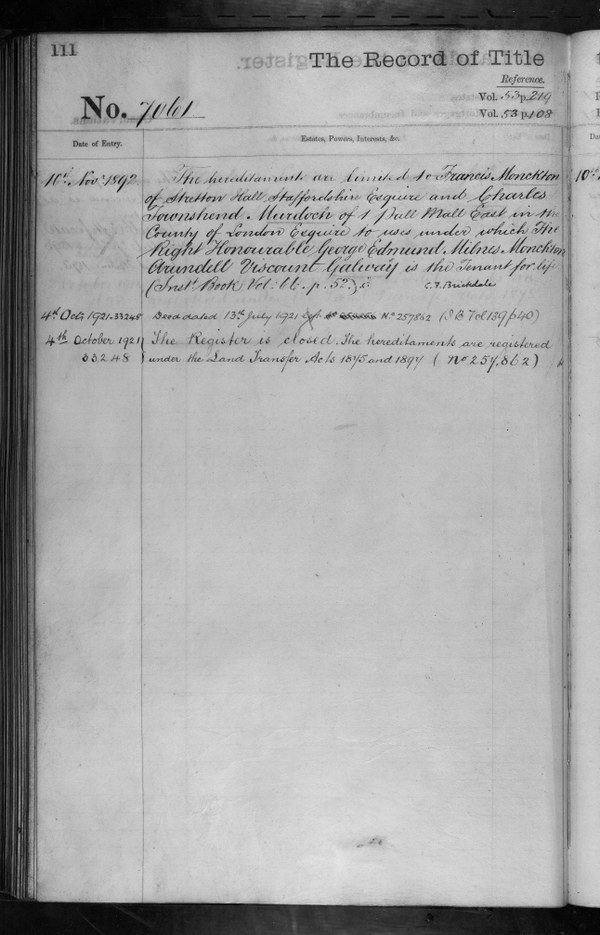 111
The Record of Title
Reference.
No. 7061
Vol. 53 p. 219
Vol. 53 p. 108
Date of Entry.
Estates, Powers, Interests, &c.
10th Novr 1892
The hereditaments are limited to Francis Monckton
of Stretton Hall Staffordshire Esquire and Charles
Townshend Murdoch of 1 Pall Mall East in the
County of London Esquire to uses under which The
Right Honourable George Edmund Milnes Monckton
Arundell Viscount Galway is the Tenant for life
(Inst. Book Vol: 66. p. 52.)
C. F. Brickdale
4th Oct. 1921. 33248
Deed dated 13th July 1921 No 257862 (I B Vol 139 p 40)
4th October 1921
The Register is closed. The hereditaments are registered
33248
under the Land Transfer Acts 1875 and 1897 (No 257,862)
10th